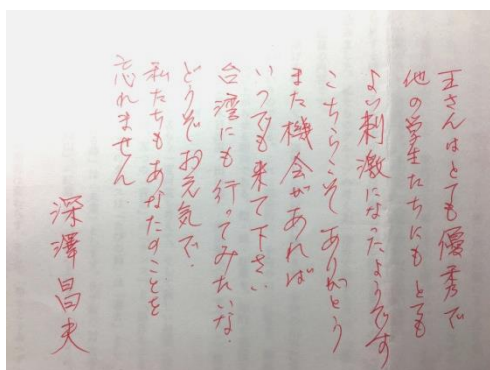 王さんはとても優秀で
他の学生たちにもとても
よい刺激になったようです
こちらこそありがとう
また機会があれば
いつでも来て下さい
台湾にも行ってみたいな
どうぞお元気で.
私たちもあなたのことを
忘れません
深澤昌夫